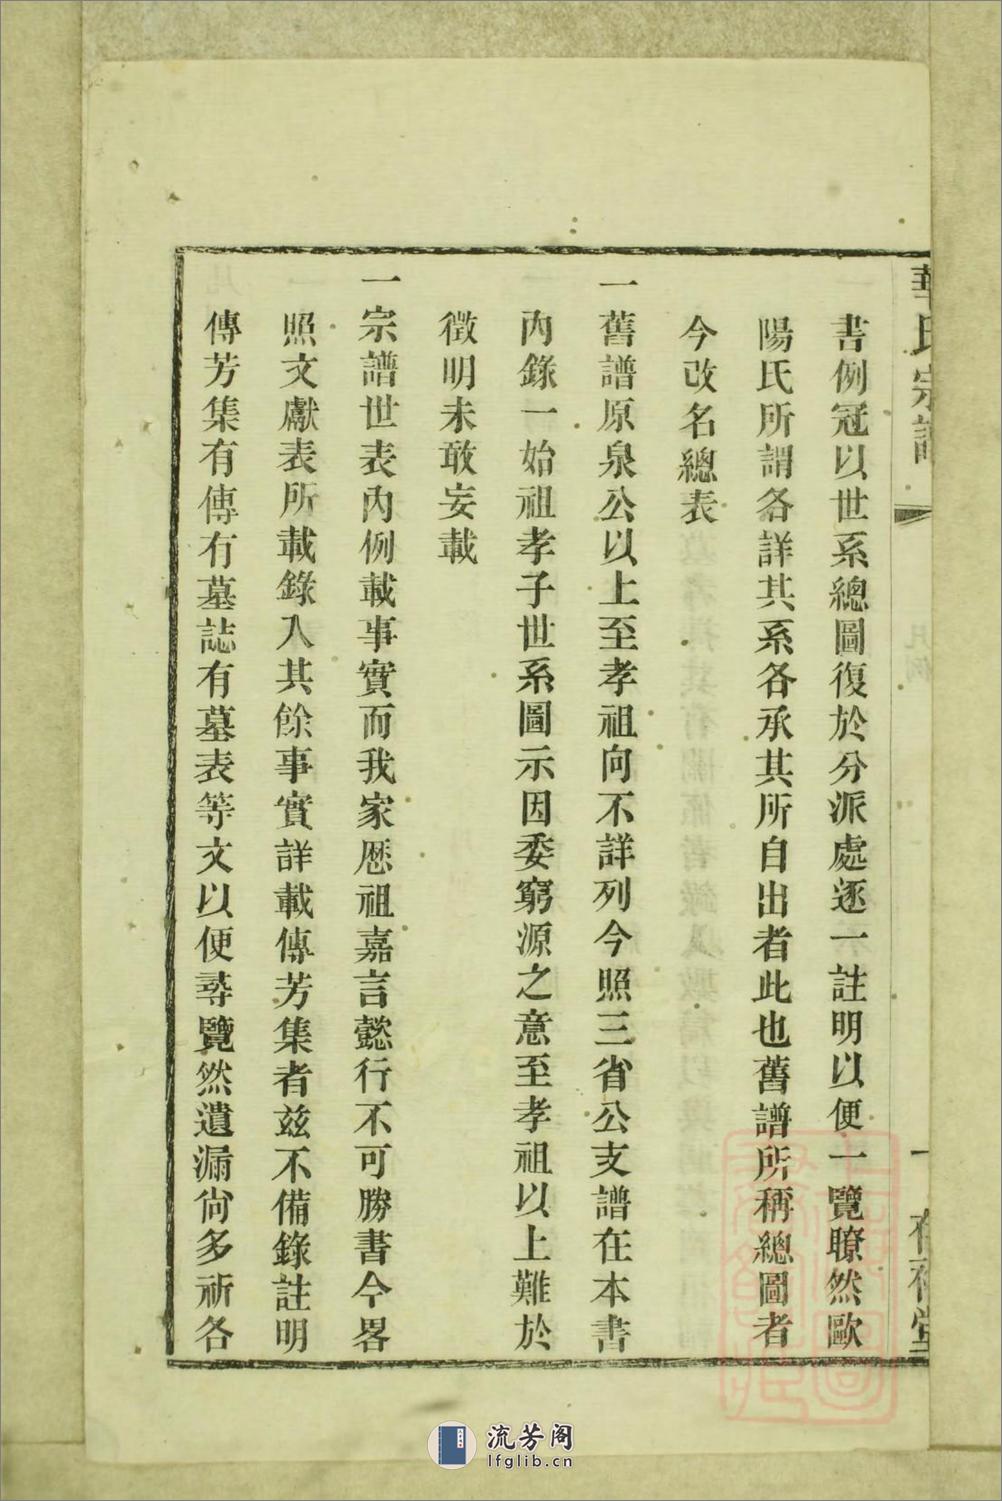 華氏宗譜
一
書例冠以世系總圖復於分派處逐一註明以便一覽瞭然歐
陽氏所謂各詳其系各承其所自出者此也舊譜所稱總圖者
今改名總表
一舊譜原泉公以上至孝祖向不詳列今照三省公支譜在本書
內錄一始祖孝子世系圖示因委窮源之意至孝祖以上難於
徵明未敢妄載
一宗譜世表內例載事實而我家歷祖嘉言懿行不可勝書今畧
照文獻表所載錄入其餘事實詳載傳芳集者茲不備錄註明
傳芳集有傳有墓誌有墓表等文以便尋覽然遺漏尙多祈各
流芳阁
lfglib.cn